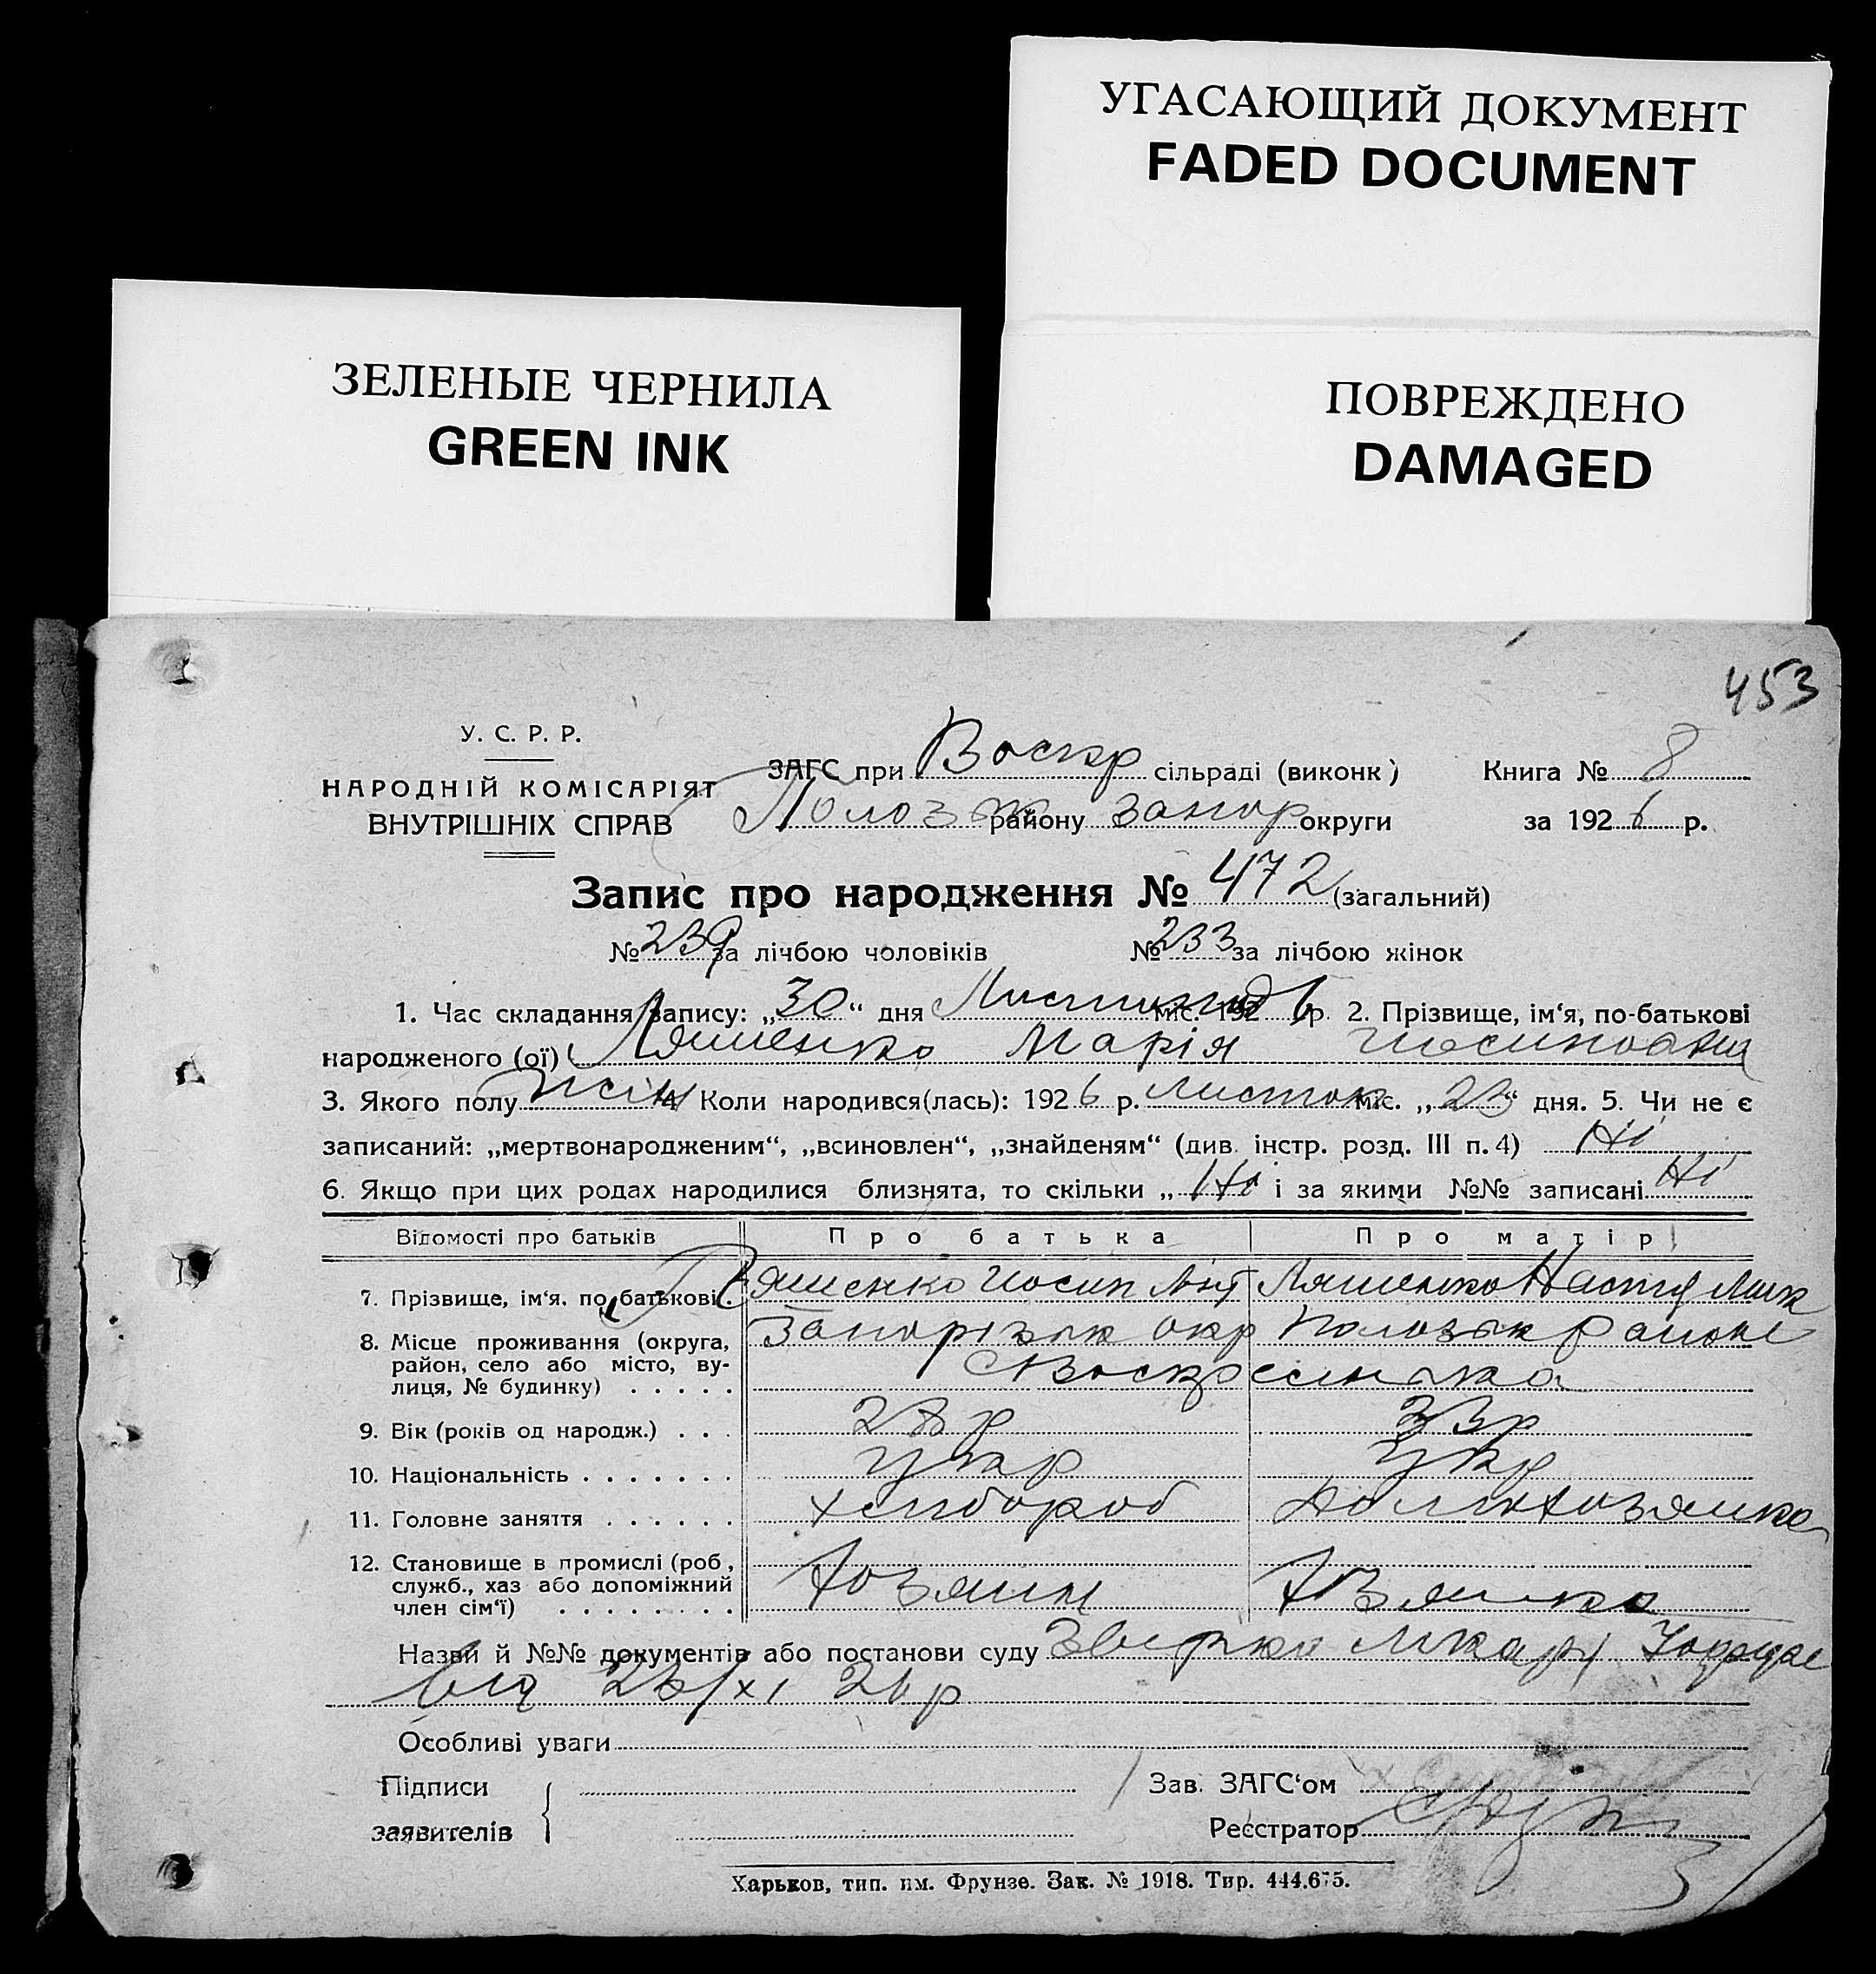 УГАСАЮЩИЙ ДОКУМЕНТ
FADED DOCUMENT
ЗЕЛЕНЫЕ ЧЕРНИЛА
GREEN INK
ПОВРЕЖДЕНО
DAMAGED
453
У. С. Р. Р.
НАРОДНІЙ КОМІСАРІЯТ
ВНУТРІШНІХ СПРАВ
ЗАГС при Воскр сільраді (виконк) Книга № 8
Полозьк району Запор округи за 1926 р.
Запис про народження № 472 (загальний)
№ 239 за лічбою чоловіків № 233 за лічбою жінок
1. Час складання запису: „30“ дня Листопад міс. 1926 р. 2. Прізвище, ім‘я, по-батькові
народженого (ої) Ляшенко Марія Йосиповна
3. Якого полу жін 4. Коли народився(лась): 1926 р. Листоп міс. „23“ дня. 5. Чи не є
записаний: „мертвонародженим“, „всиновлен“, „знайденям“ (див. інстр. розд. III п. 4) Ні
6. Якщо при цих родах народилися близнята, то скільки „Ні і за якими №№ записані Ні
Відомості про батьків Про батька Про матір
7. Прізвище, ім‘я, по батькові Ляшенко Йосип Ляшенко Настя Мик
8. Місце проживання (округа, Запорізьк окр Полозьк района
район, село або місто, ву- Воскресенька
лиця, № будинку)
9. Вік (років од народж.) 28 р 33 р
10. Національність Укр Укр
11. Головне заняття хлибороб домохозяика
12. Становище в промислі (роб,
служб., хаз або допоміжний Хозяин Хозяика
член сім‘ї)
Назви й №№ документів або постанови суду лікарі
від 23/XI 26 р
Особливі уваги
Підписи Зав. ЗАГС‘ом
заявителів Реєстратор
Харьков, тип. им. Фрунзе. Зак. № 1918. Тир. 444.675.